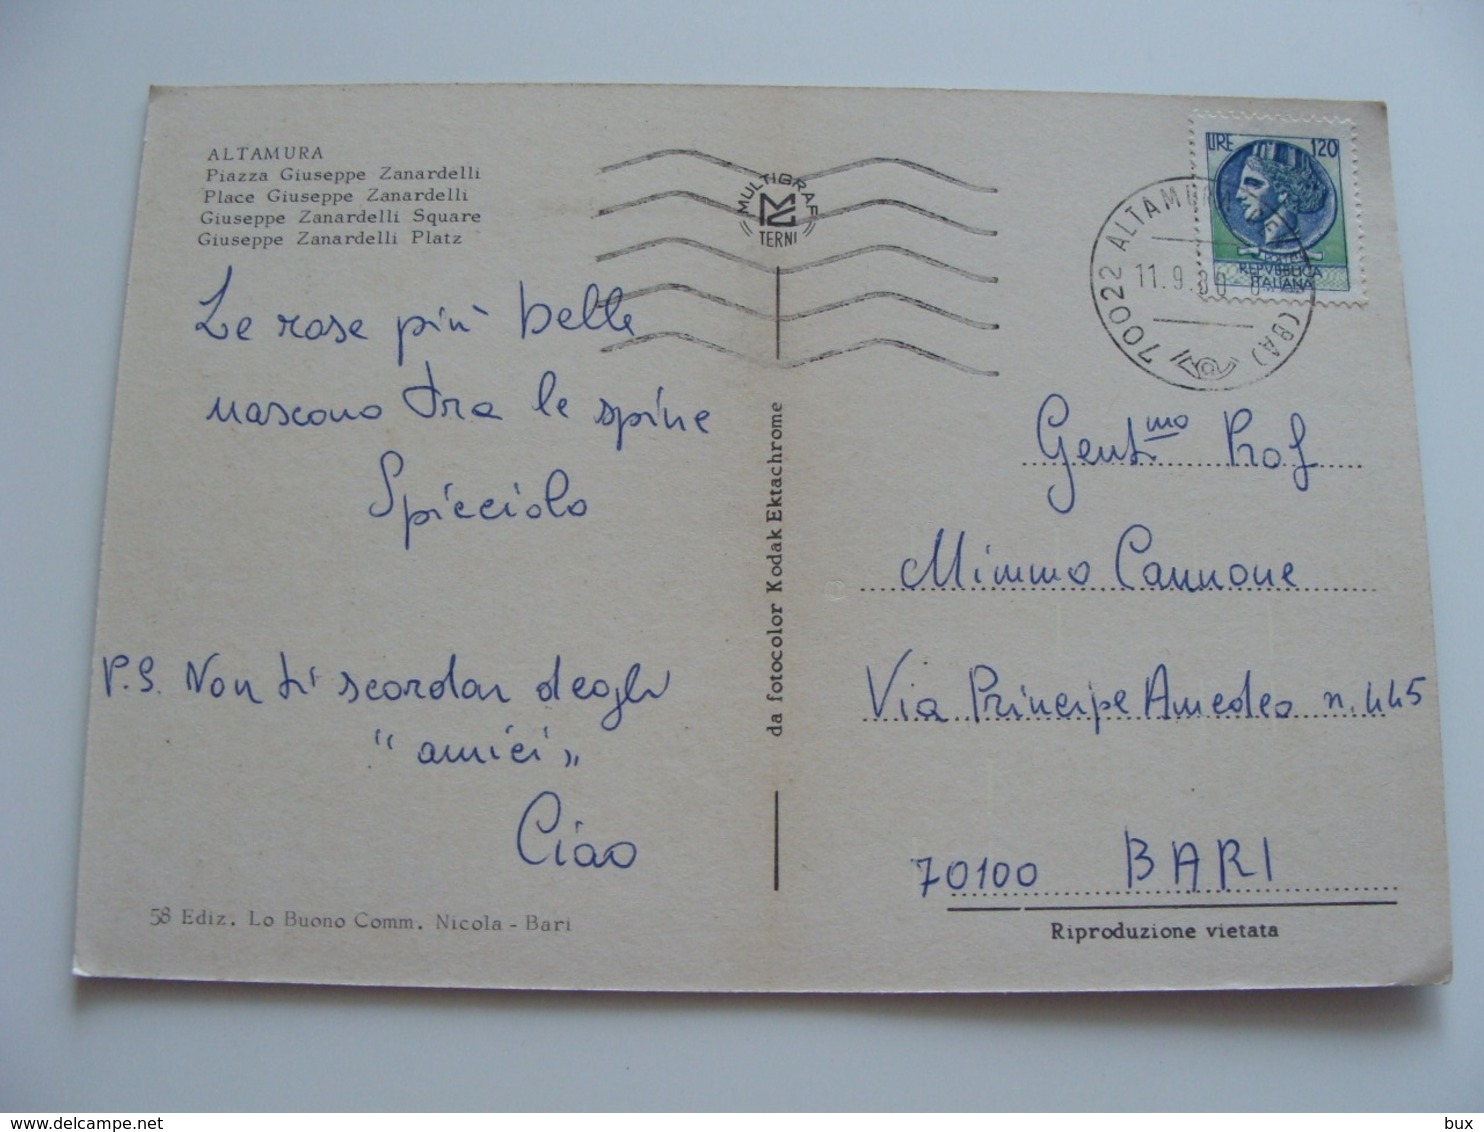 ALTAMURA
Piazza Giuseppe Zanardelli
Place Giuseppe Zanardelli
Giuseppe Zanardelli Square
Giuseppe Zanardelli Platz
Le rose più belle
nascono tra le spine
Spicciolo
P.S. Non ti scordar degli
"amici"
Ciao
58 Ediz. Lo Buono Comm. Nicola - Bari
MULTIGRAF
TERNI
da fotocolor Kodak Ektachrome
LIRE 120
REPVBBLICA
ITALIANA
70022 ALTAMURA (BA)
11.9.80
Gent.mo Prof
Mimmo Cannone
Via Principe Amedeo n. 445
70100 BARI
Riproduzione vietata
delcampe.net
bux